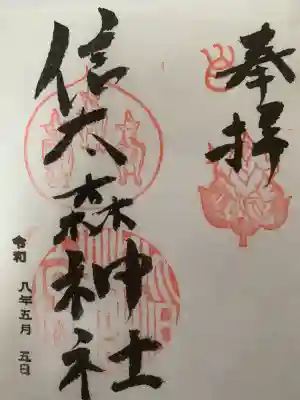 奉拝
信太森神社
令和 八年五月 五日